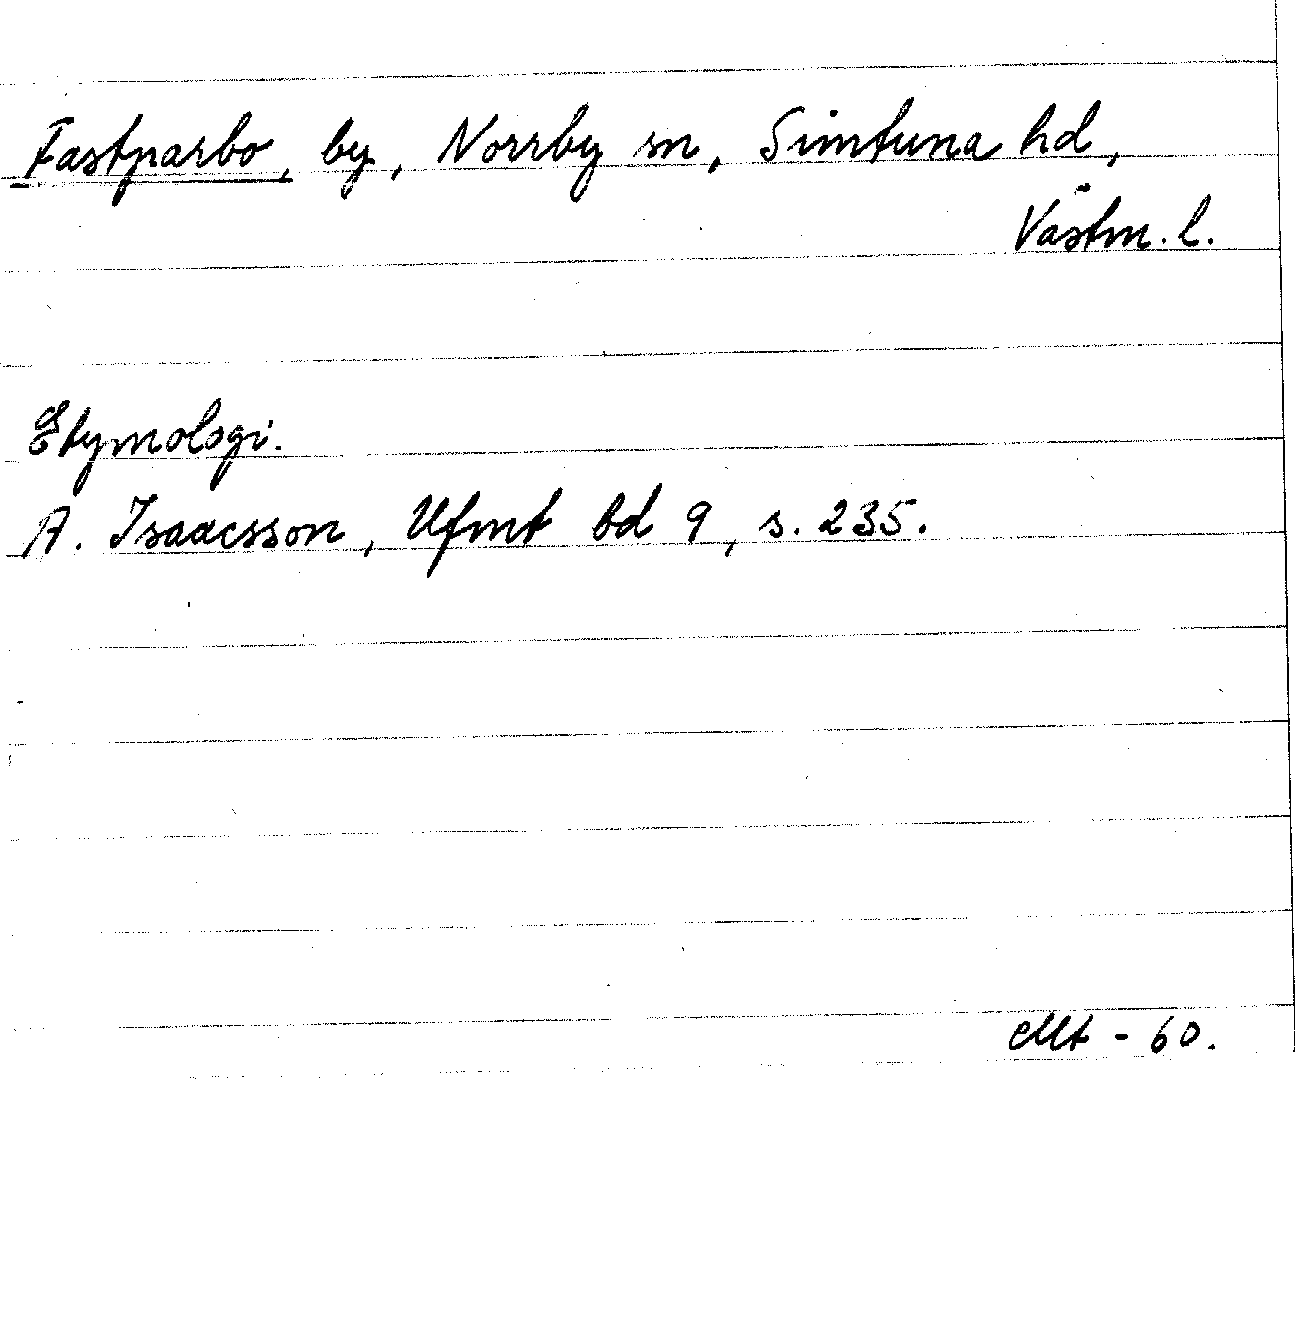 Fastparbo, by, Norrby sn, Simtuna hd,
Västm. l.
Etymologi.
A. Isaacsson, Ufmt bd 9, s. 235.
Mt - 60.